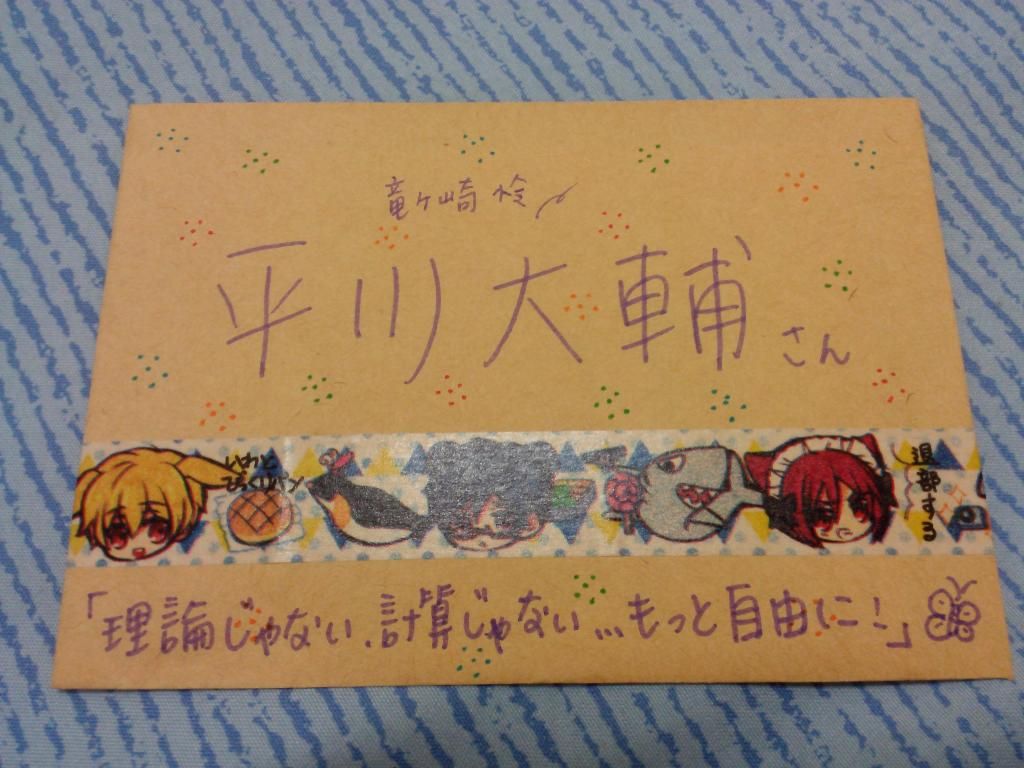 竜ヶ崎 怜
平川大輔さん
いわとびっくりパン
退部する
「理論じゃない、計算じゃない…もっと自由に!」